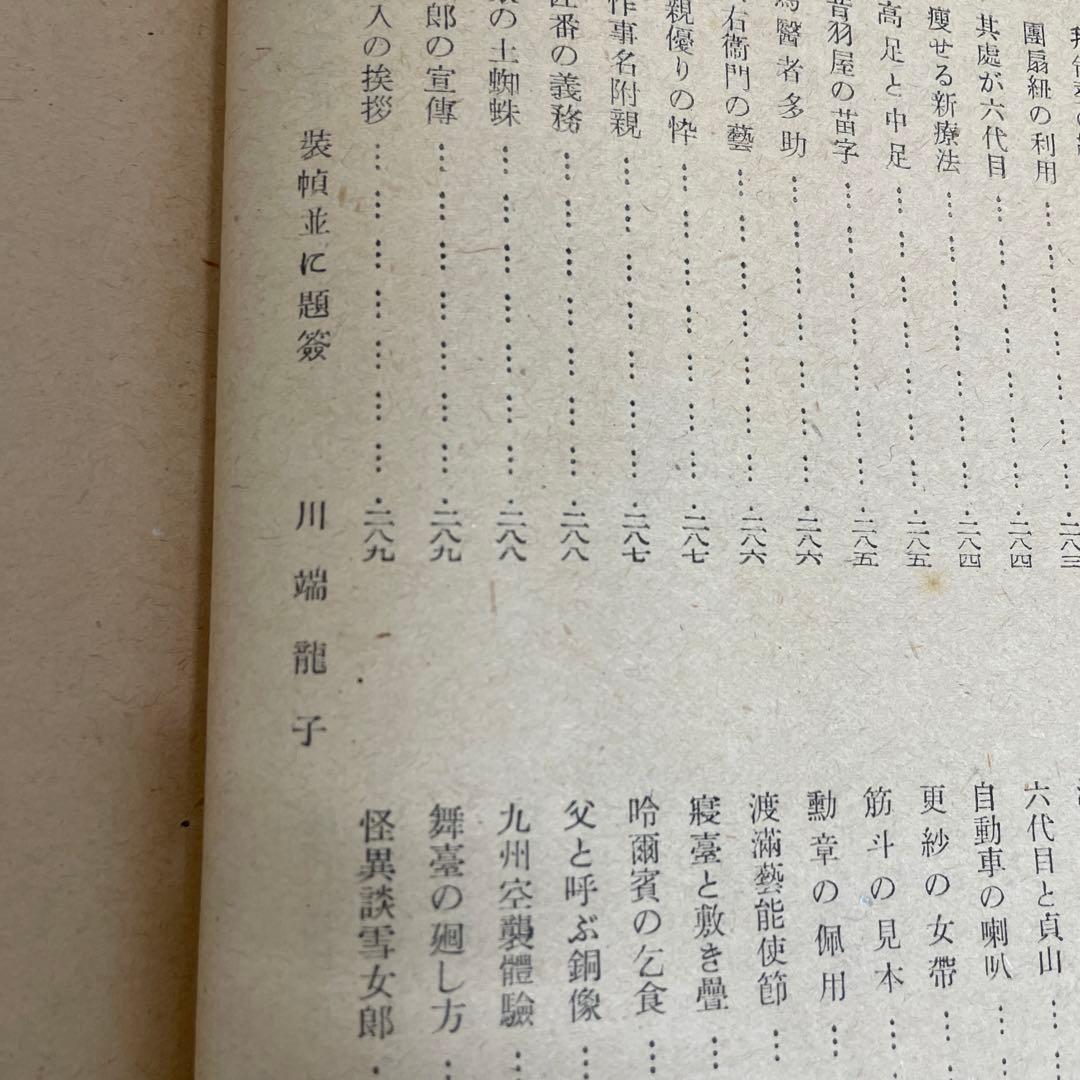 團扇紐の利用……………………二八三
其處が六代目……………………二八四
瘦せる新療法……………………二八四
高足と中足……………………二八五
音羽屋の苗字……………………二八五
馬醫者多助……………………二八六
右衞門の藝……………………二八六
親優りの忰……………………二八七
作事名附親……………………二八七
番の義務……………………二八八
の土蜘蛛……………………二八八
郎の宣傳……………………二八九
人の挨拶……………………二八九
裝幀並に題簽 川端龍子
六代目と貞山……
自動車の喇叭……
更紗の女帶……
筋斗の見本……
勳章の佩用……
渡滿藝能使節……
寢臺と敷き疊……
哈爾賓の乞食……
父と呼ぶ銅像……
九州空襲體驗……
舞臺の廻し方……
怪異談雪女郎……